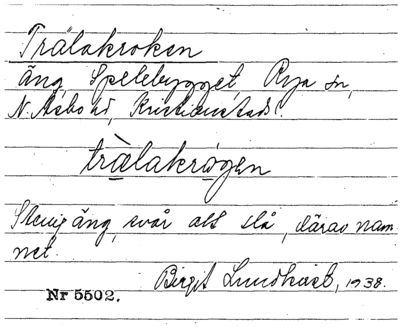 Trälakroken
äng Spelebygget, Rya sn,
N. Åsbo hd, Kristianstads l.
trä̀lakrogen
Stenig äng, svår att slå, därav nam-
net.
Birgit Lundkvist, 1938.
Nr 5502.